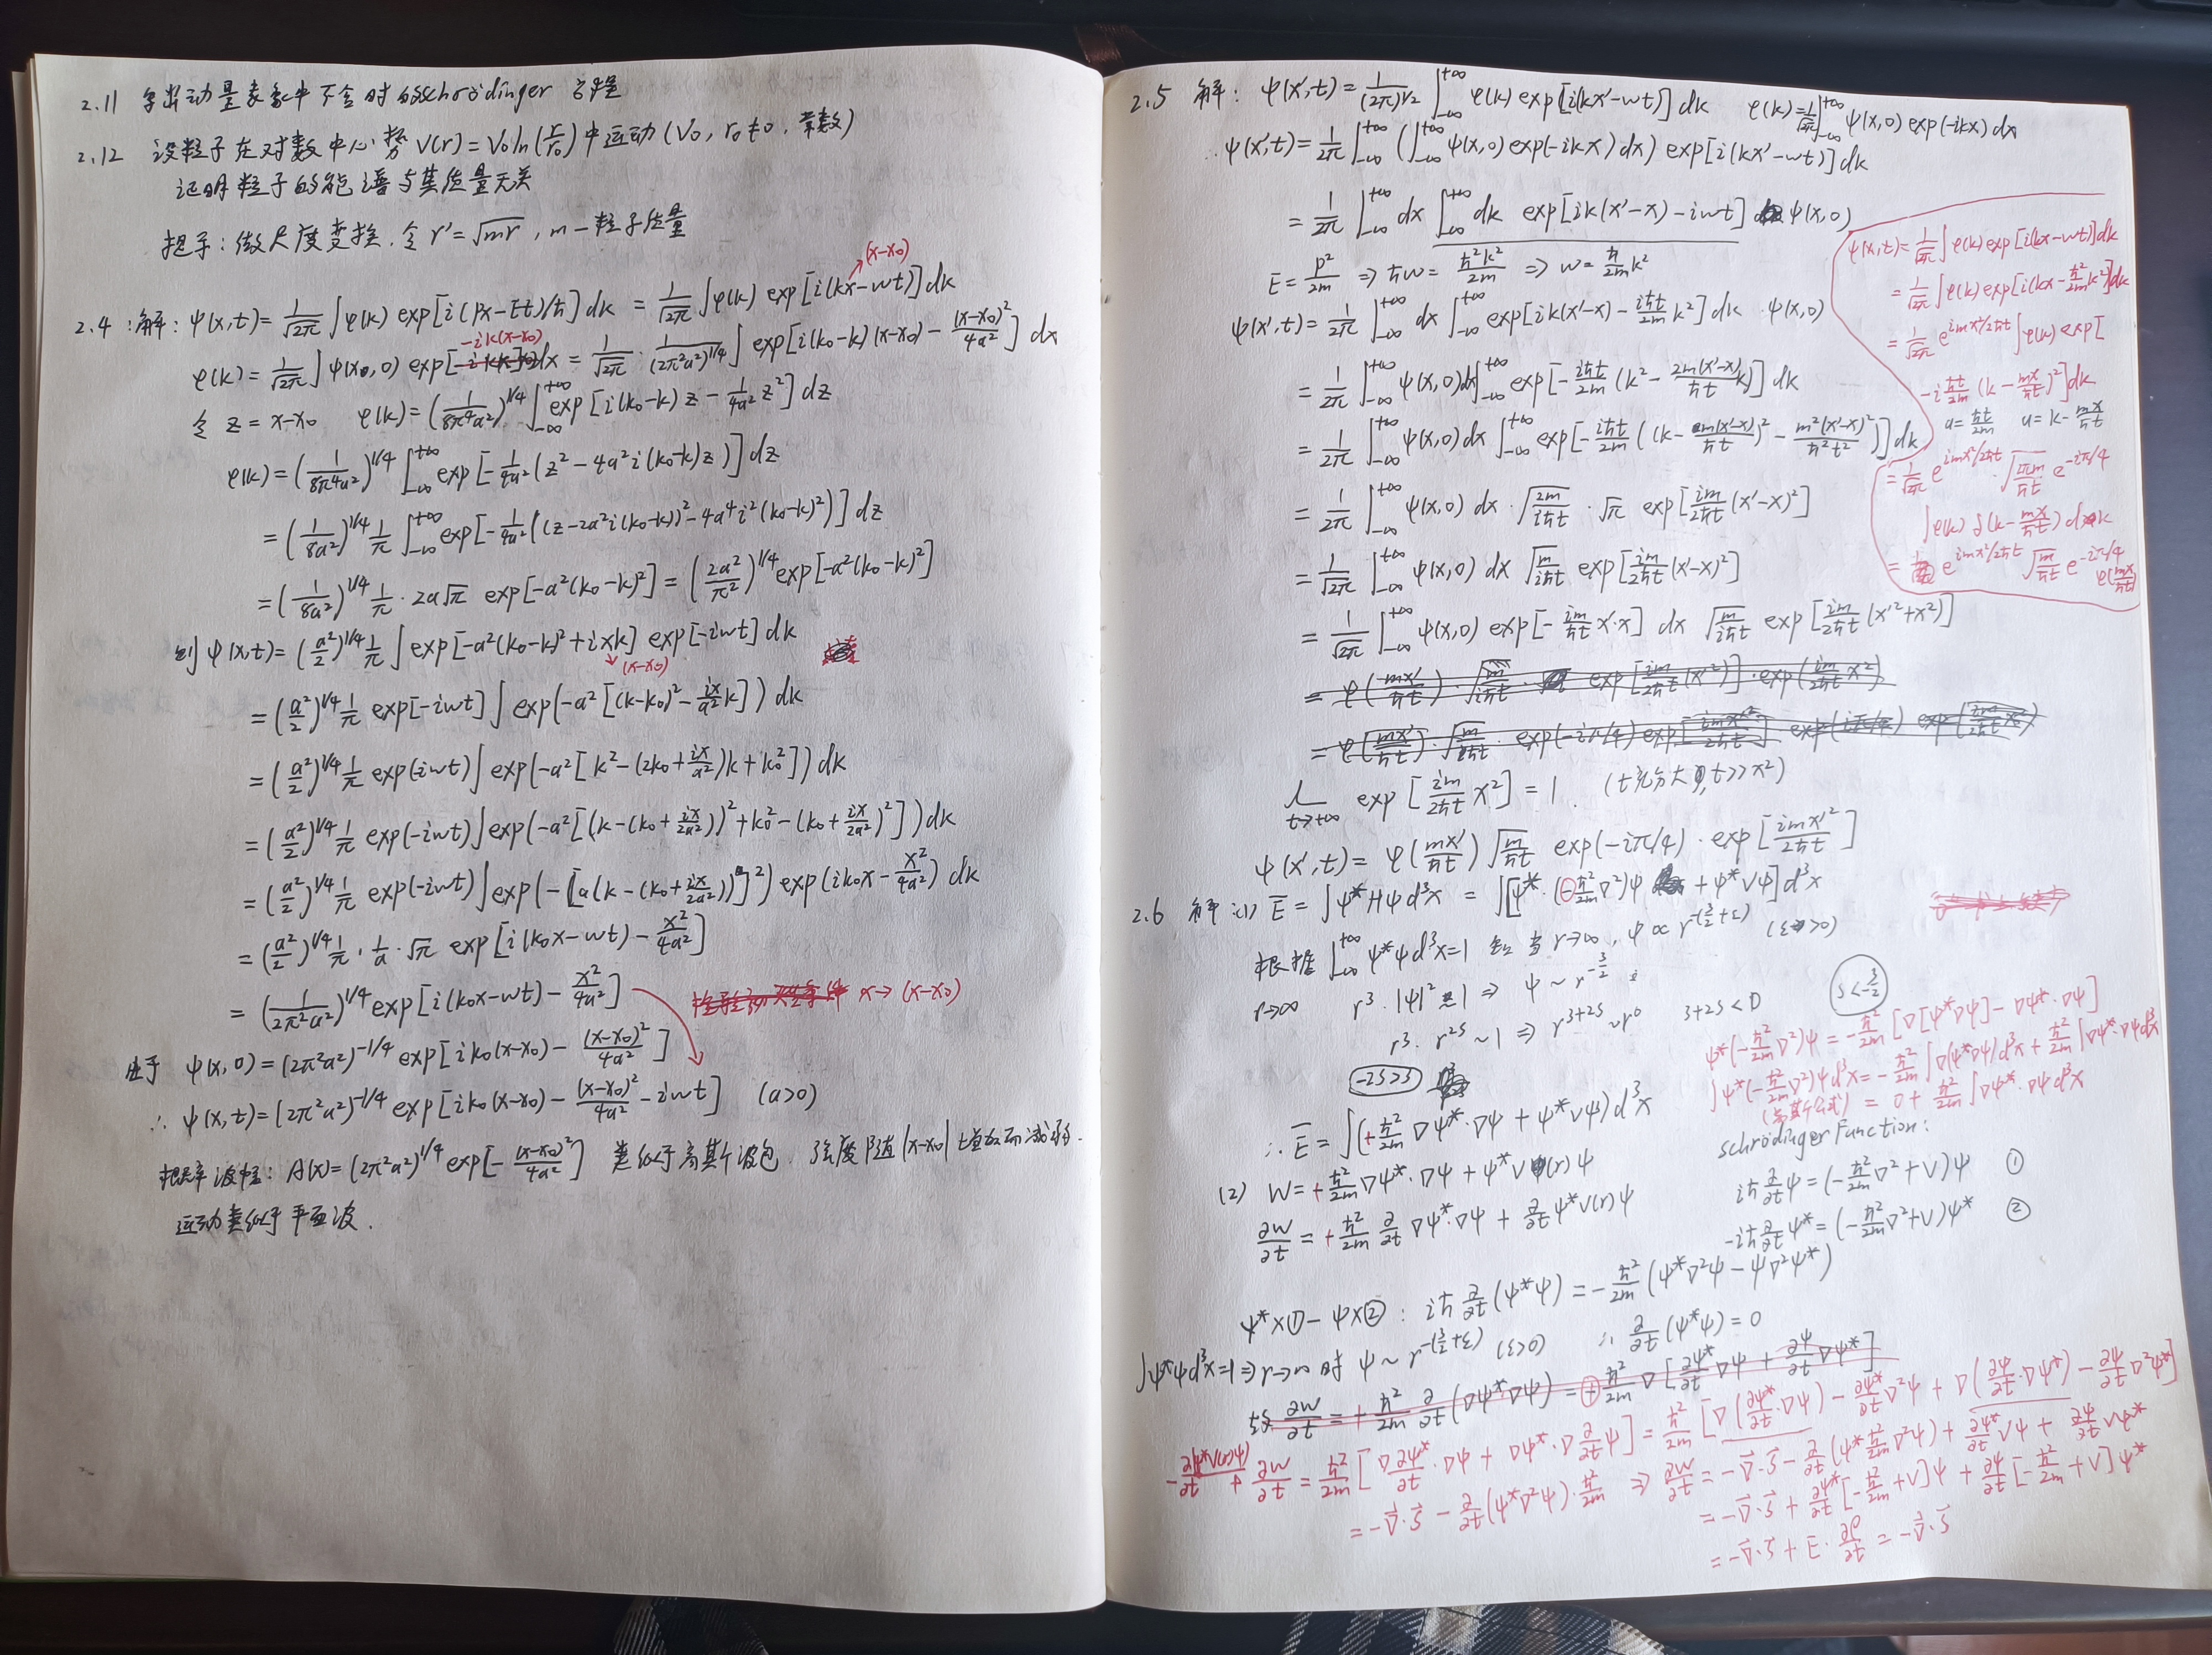 2.11 写出动量表象中不含时的schrödinger方程
2.12 设粒子在对数中心势 V(r)=V₀ln(r/r₀) 中运动 (V₀, r₀≠0, 常数)
证明粒子的能谱与其质量无关
提示: 做尺度变换. 令 r'=√mr, m—粒子质量
(x-x₀)
2.4 :解: ψ(x,t)= 1/√2π ∫φ(k) exp[i(px-Et)/ħ]dk = 1/√2π ∫φ(k) exp[i(kx-wt)]dk
-ik(x-x₀)
φ(k)= 1/√2π ∫ψ(x,0) exp[-ikx]dx = 1/√2π · 1/(2π²a²)^1/4 ∫exp[i(k₀-k)(x-x₀) - (x-x₀)²/4a²] dx
令 z=x-x₀ φ(k)=(1/8π⁴a²)^1/4 ∫_-∞^+∞ exp[i(k₀-k)z - 1/4a² z²]dz
φ(k)=(1/8π⁴a²)^1/4 ∫_-∞^+∞ exp[-1/4a²(z²-4a²i(k₀-k)z)]dz
=(1/8a²)^1/4 1/π ∫_-∞^+∞ exp[-1/4a²((z-2a²i(k₀-k))²-4a⁴i²(k₀-k)²)]dz
=(1/8a²)^1/4 1/π · 2a√π exp[-a²(k₀-k)²] = (2a²/π²)^1/4 exp[-a²(k₀-k)²]
则 ψ(x,t)=(a²/2)^1/4 1/π ∫exp[-a²(k₀-k)²+ixk] exp[-iwt]dk
(x-x₀)
=(a²/2)^1/4 1/π exp[-iwt]∫exp(-a²[(k-k₀)²-ix/a² k])dk
=(a²/2)^1/4 1/π exp(iwt)∫exp(-a²[k²-(2k₀+ix/a²)k+k₀²])dk
=(a²/2)^1/4 1/π exp(-iwt)∫exp(-a²[(k-(k₀+ix/2a²))²+k₀²-(k₀+ix/2a²)²])dk
=(a²/2)^1/4 1/π exp(-iwt)∫exp(-[a(k-(k₀+ix/2a²))]²)exp(ik₀x-x²/4a²)dk
=(a²/2)^1/4 1/π · 1/a · √π exp[i(k₀x-wt)-x²/4a²]
=(1/2π²a²)^1/4 exp[i(k₀x-wt)-x²/4a²] x→(x-x₀)
由于 ψ(x,0)=(2π²a²)^-1/4 exp[ik₀(x-x₀)-(x-x₀)²/4a²]
∴ ψ(x,t)=(2π²a²)^-1/4 exp[ik₀(x-x₀)-(x-x₀)²/4a²-iwt] (a>0)
概率波幅: A(x)=(2π²a²)^1/4 exp[-(x-x₀)²/4a²] 类似于高斯波包. 强度随|x-x₀|增加而减弱.
运动类似于平面波.
2.5 解: ψ(x',t)= 1/(2π)^1/2 ∫_-∞^+∞ φ(k) exp[i(kx'-wt)]dk φ(k)=1/√2π ∫_-∞^+∞ ψ(x,0)exp(-ikx)dx
∴ψ(x',t)= 1/2π ∫_-∞^+∞ (∫_-∞^+∞ ψ(x,0)exp(-ikx)dx) exp[i(kx'-wt)]dk
= 1/2π ∫_-∞^+∞ dx ∫_-∞^+∞ dk exp[ik(x'-x)-iwt] ψ(x,0)
E=p²/2m ⇒ ħw=ħ²k²/2m ⇒ w=ħ/2m k²
ψ(x',t)= 1/2π ∫_-∞^+∞ dx ∫_-∞^+∞ exp[ik(x'-x)-iħt/2m k²]dk · ψ(x,0)
= 1/2π ∫_-∞^+∞ ψ(x,0)dx ∫_-∞^+∞ exp[-iħt/2m(k²-2m(x'-x)/ħt k)]dk
= 1/2π ∫_-∞^+∞ ψ(x,0)dx ∫_-∞^+∞ exp[-iħt/2m((k-m(x'-x)/ħt)²-m²(x'-x)²/ħ²t²)]dk
= 1/2π ∫_-∞^+∞ ψ(x,0)dx·√(2m/iħt)·√π exp[im/2ħt(x'-x)²]
= 1/√2π ∫_-∞^+∞ ψ(x,0)dx √(m/iħt) exp[im/2ħt(x'-x)²]
= 1/√2π ∫_-∞^+∞ ψ(x,0)exp[-im/ħt x'·x]dx √(m/iħt) exp[im/2ħt(x'²+x²)]
= φ(mx'/ħt)·√(m/iħt)· exp[im/2ħt(x'²)]·exp(im/2ħt x²)
L t→+∞ exp[im/2ħt x²]=1. (t充分大, t>>x²)
ψ(x',t)=φ(mx'/ħt)√(m/ħt) exp(-iπ/4)·exp[imx'²/2ħt]
ψ(x,t)=1/√2π ∫φ(k)exp[i(kx-wt)]dk
=1/√2π ∫φ(k)exp[i(kx-ħ/2m k²t)]dk
=1/√2π e^imx²/2ħt ∫φ(k)exp[
-iħt/2m(k-mx/ħt)²]dk
a=ħt/2m u=k-mx/ħt
=1/√2π e^imx²/2ħt·√(2πm/ħt) e^-iπ/4
∫φ(k)δ(k-mx/ħt)dk
= e^imx²/2ħt √(m/ħt) e^-iπ/4 φ(mx/ħt)
2.6 解:(1) E̅=∫ψ*Hψd³x = ∫[ψ*·(-ħ²/2m ∇²)ψ + ψ*Vψ]d³x
根据∫_-∞^+∞ ψ*ψd³x=1 知 当r→∞, ψ∝r^-(3/2+ε) (ε>0)
r→∞ r³·|ψ|²=1 ⇒ ψ~r^-3/2
r³·r^2s~1 ⇒ r^3+2s~r⁰ 3+2s<0 s<-3/2
-2s>3
ψ*(-ħ²/2m ∇²)ψ=-ħ²/2m[∇[ψ*∇ψ]-∇ψ*·∇ψ]
∫ψ*(-ħ²/2m ∇²)ψd³x=-ħ²/2m∫∇(ψ*∇ψ)d³x+ħ²/2m∫∇ψ*·∇ψd³x
(高斯公式) = 0+ħ²/2m∫∇ψ*·∇ψd³x
∴E̅=∫(+ħ²/2m ∇ψ*·∇ψ+ψ*Vψ)d³x
schrödinger Function:
(2) W=+ħ²/2m ∇ψ*·∇ψ+ψ*V(r)ψ
iħ∂/∂t ψ=(-ħ²/2m ∇²+V)ψ ①
∂W/∂t=+ħ²/2m ∂/∂t ∇ψ*·∇ψ+∂/∂t ψ*V(r)ψ
-iħ∂/∂t ψ*=(-ħ²/2m ∇²+V)ψ* ②
ψ*×①-ψ×②: iħ∂/∂t(ψ*ψ)=-ħ²/2m(ψ*∇²ψ-ψ∇²ψ*)
∫ψ*ψd³x=1⇒r→∞时 ψ~r^-(3/2+ε) (ε>0) ∴∂/∂t(ψ*ψ)=0
故∂W/∂t=+ħ²/2m ∂/∂t(∇ψ*∇ψ)=+ħ²/2m ∇[∂ψ*/∂t ∇ψ+∂ψ/∂t ∇ψ*]
-∂(ψ*V(r)ψ)/∂t+∂W/∂t=ħ²/2m[∇∂ψ*/∂t·∇ψ+∇ψ*·∇∂/∂t ψ]=ħ²/2m[∇(∂ψ*/∂t·∇ψ)-∂ψ*/∂t ∇²ψ+∇(∂ψ/∂t·∇ψ*)-∂ψ/∂t ∇²ψ*]
=-∇·S-∂/∂t(ψ*∇²ψ)·ħ²/2m ⇒ ∂W/∂t=-∇·S-∂/∂t(ψ*ħ²/2m ∇²ψ)+∂ψ*/∂t Vψ+∂ψ/∂t Vψ*
=-∇·S+∂ψ*/∂t[-ħ²/2m+V]ψ+∂ψ/∂t[-ħ²/2m+V]ψ*
=-∇·S+E·∂ρ/∂t=-∇·S